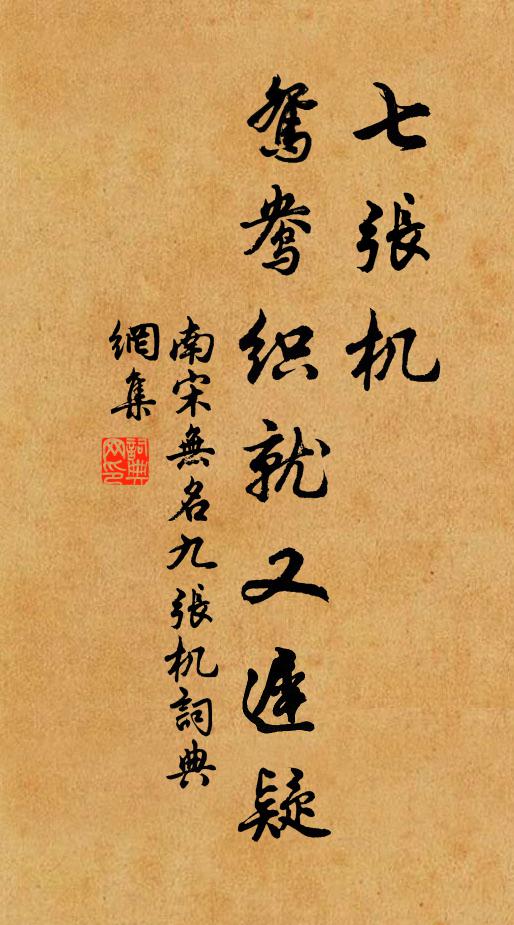 七張机
鴛鴦织就又遲疑
南宋無名九張机詞典
網集
詞典
网印